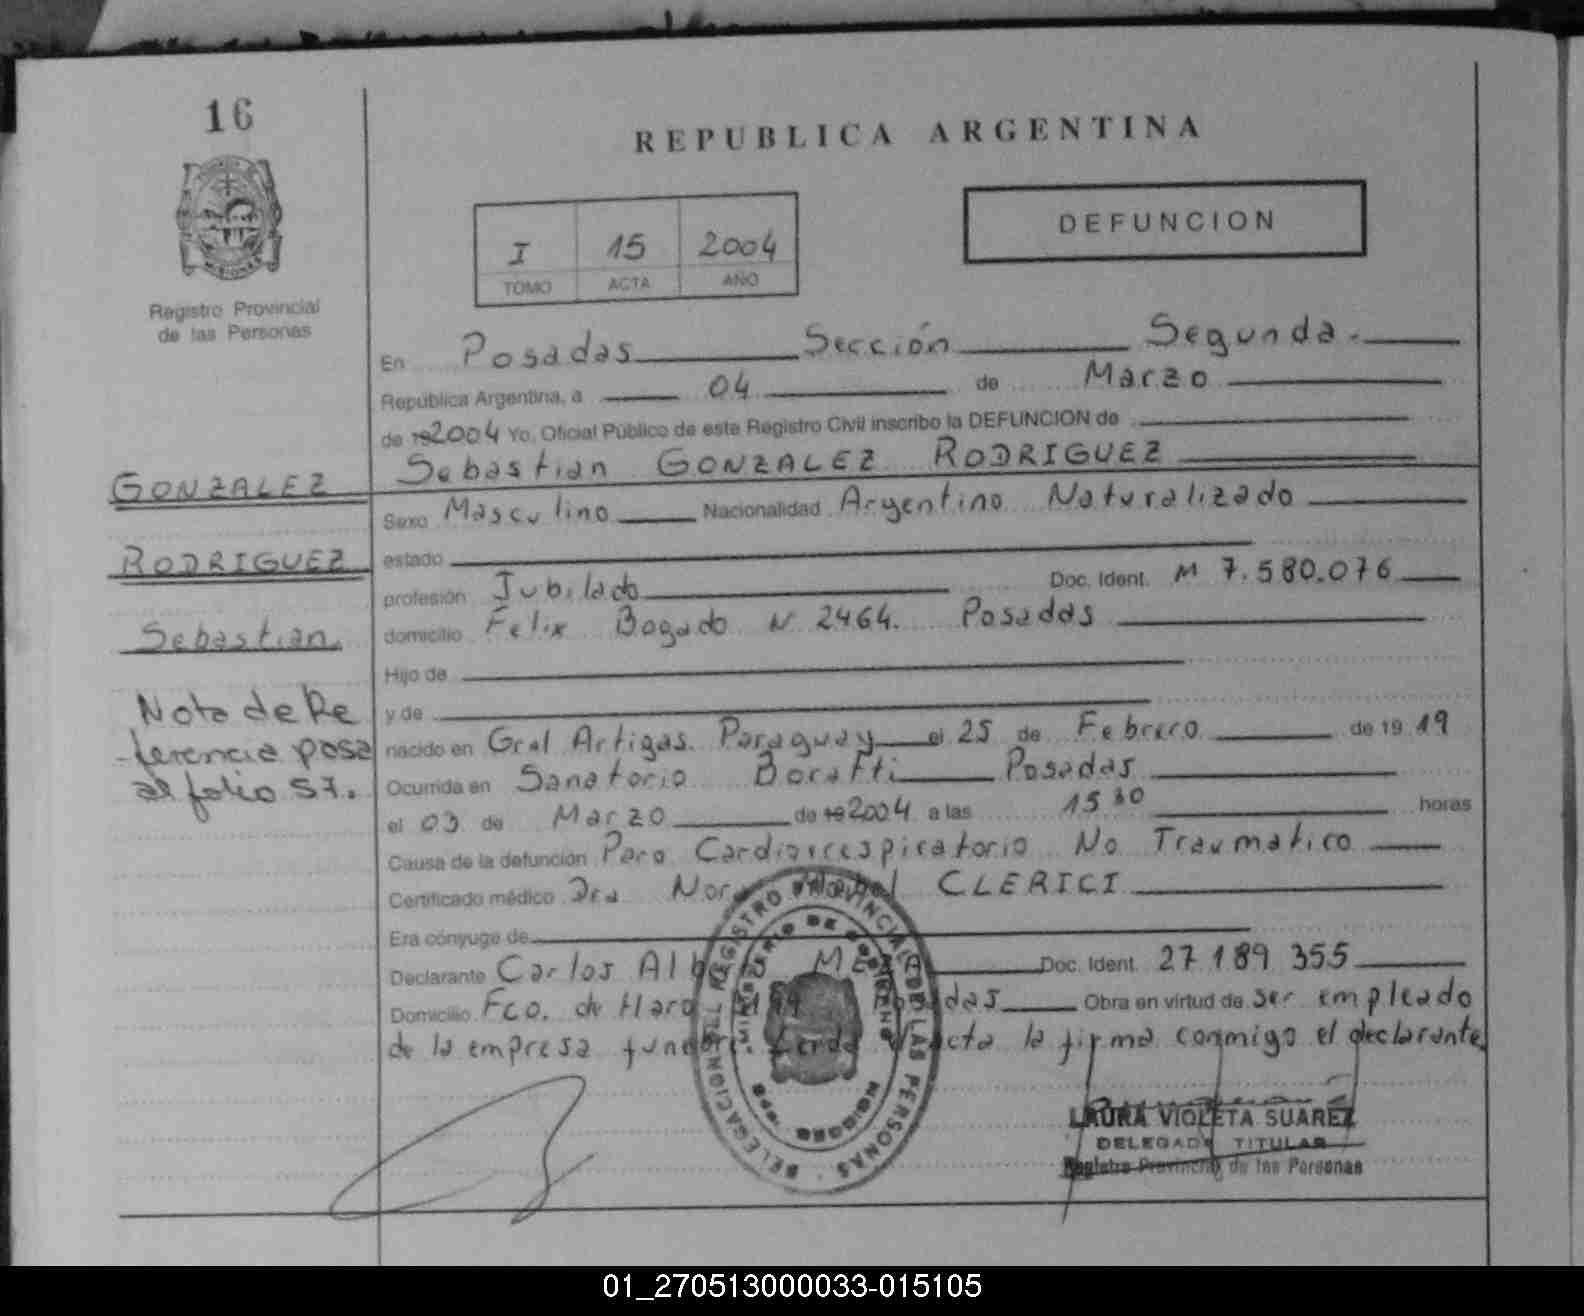 16
REPUBLICA ARGENTINA
I 15 2004
TOMO ACTA AÑO
DEFUNCION
Registro Provincial
de las Personas
En Posadas Sección Segunda.
República Argentina, a 04 de Marzo
de 192004 Yo, Oficial Público de este Registro Civil inscribo la DEFUNCION de
Sebastian GONZALEZ RODRIGUEZ
GONZALEZ
RODRIGUEZ
Sebastian.
Nota de Re
-ferencia pasa
al folio 57.
Sexo Masculino Nacionalidad Argentino Naturalizado
estado
profesión Jubilado Doc. Ident. M 7.580.076
domicilio Felix Bogado N 2464. Posadas
Hijo de
y de
nacido en Gral Artigas. Paraguay el 25 de Febrero de 19 19
Ocurrida en Sanatorio Boratti Posadas
el 03 de Marzo de 192004 a las 15 30 horas
Causa de la defunción Paro Cardiorrespiratorio No Traumatico
Certificado médico Dra CLERICI
Era cónyuge de
Declarante Carlos Doc. Ident. 27 189 355
Domicilio Fco. de Haro Obra en virtud de ser empleado
de la empresa la firma conmigo el declarante
DELEGACION DEL REGISTRO PROVINCIAL DE LAS PERSONAS
MINISTERIO DE GOBIERNO
LAURA VIOLETA SUAREZ
DELEGADA TITULAR
Registro Provincial de las Personas
01_270513000033-015105